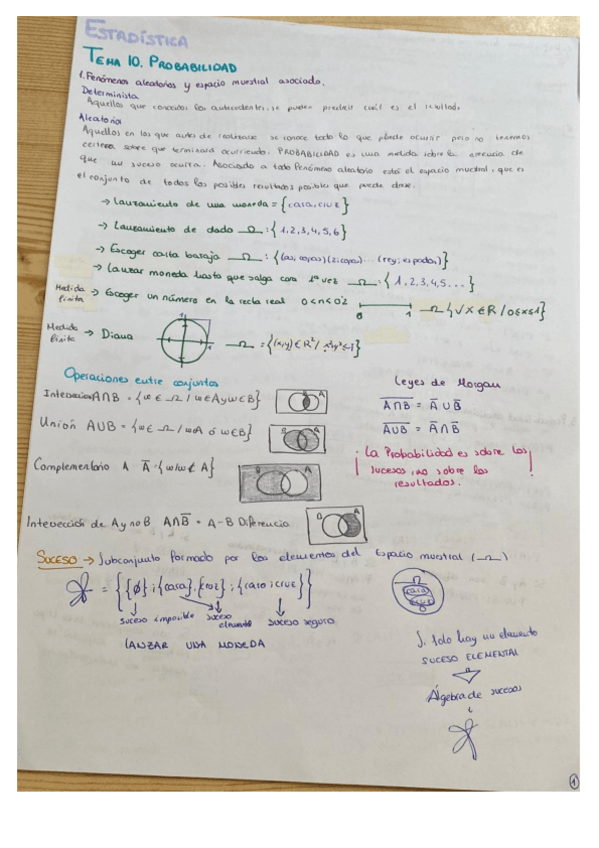 ESTADÍSTICA
TEMA 10. PROBABILIDAD
1. Fenómenos aleatorios y espacio muestral asociado.
Determinista
Aquellos que conocidos los antecedentes, se pueden predecir cuál es el resultado
Aleatorio
Aquellos en los que antes de realizarse se conoce todo lo que puede ocurrir pero no tenemos
certeza sobre que terminará ocurriendo. PROBABILIDAD es una medida sobre la creencia de
que un suceso ocurra. Asociado a todo fenómeno aleatorio está el espacio muestral, que es
el conjunto de todos los posibles resultados posibles que puede darse.
→ Lanzamiento de una moneda = {cara, cruz}
→ Lanzamiento de dado Ω: {1,2,3,4,5,6}
→ Escoger carta baraja Ω: {(as, copas)(2, copas)...(rey, espadas)}
→ Lanzar moneda hasta que salga cara 1ª vez Ω: {1,2,3,4,5...}
Medida finita → Escoger un número en la recta real 0<n<0'2 0 1 Ω {√x ∈ R / 0≤x≤1}
Medida finita → Diana Ω = {(x,y) ∈ R² / x²+y²≤1}
Operaciones entre conjuntos
Leyes de Morgan
Intersección A∩B = {ω ∈ Ω / ω∈A y ω∈B} B A
A∩B = A ∪ B
Unión A∪B = {ω∈ Ω / ω∈A ó ω∈B} B A
A∪B = A ∩ B
Complementario A A = {ω/ω ∉ A} B A
¡La Probabilidad es sobre los
sucesos, no sobre los
resultados.!
Intersección de A y no B A∩B = A-B Diferencia B A
SUCESO → Subconjunto formado por los elementos del Espacio muestral (Ω)
= {{ø}; {cara}, {cruz}; {cara, cruz}}
suceso imposible suceso elemental suceso seguro
LANZAR UNA MONEDA
Ω
cara
cruz
Si solo hay un elemento
SUCESO ELEMENTAL
Álgebra de sucesos
1